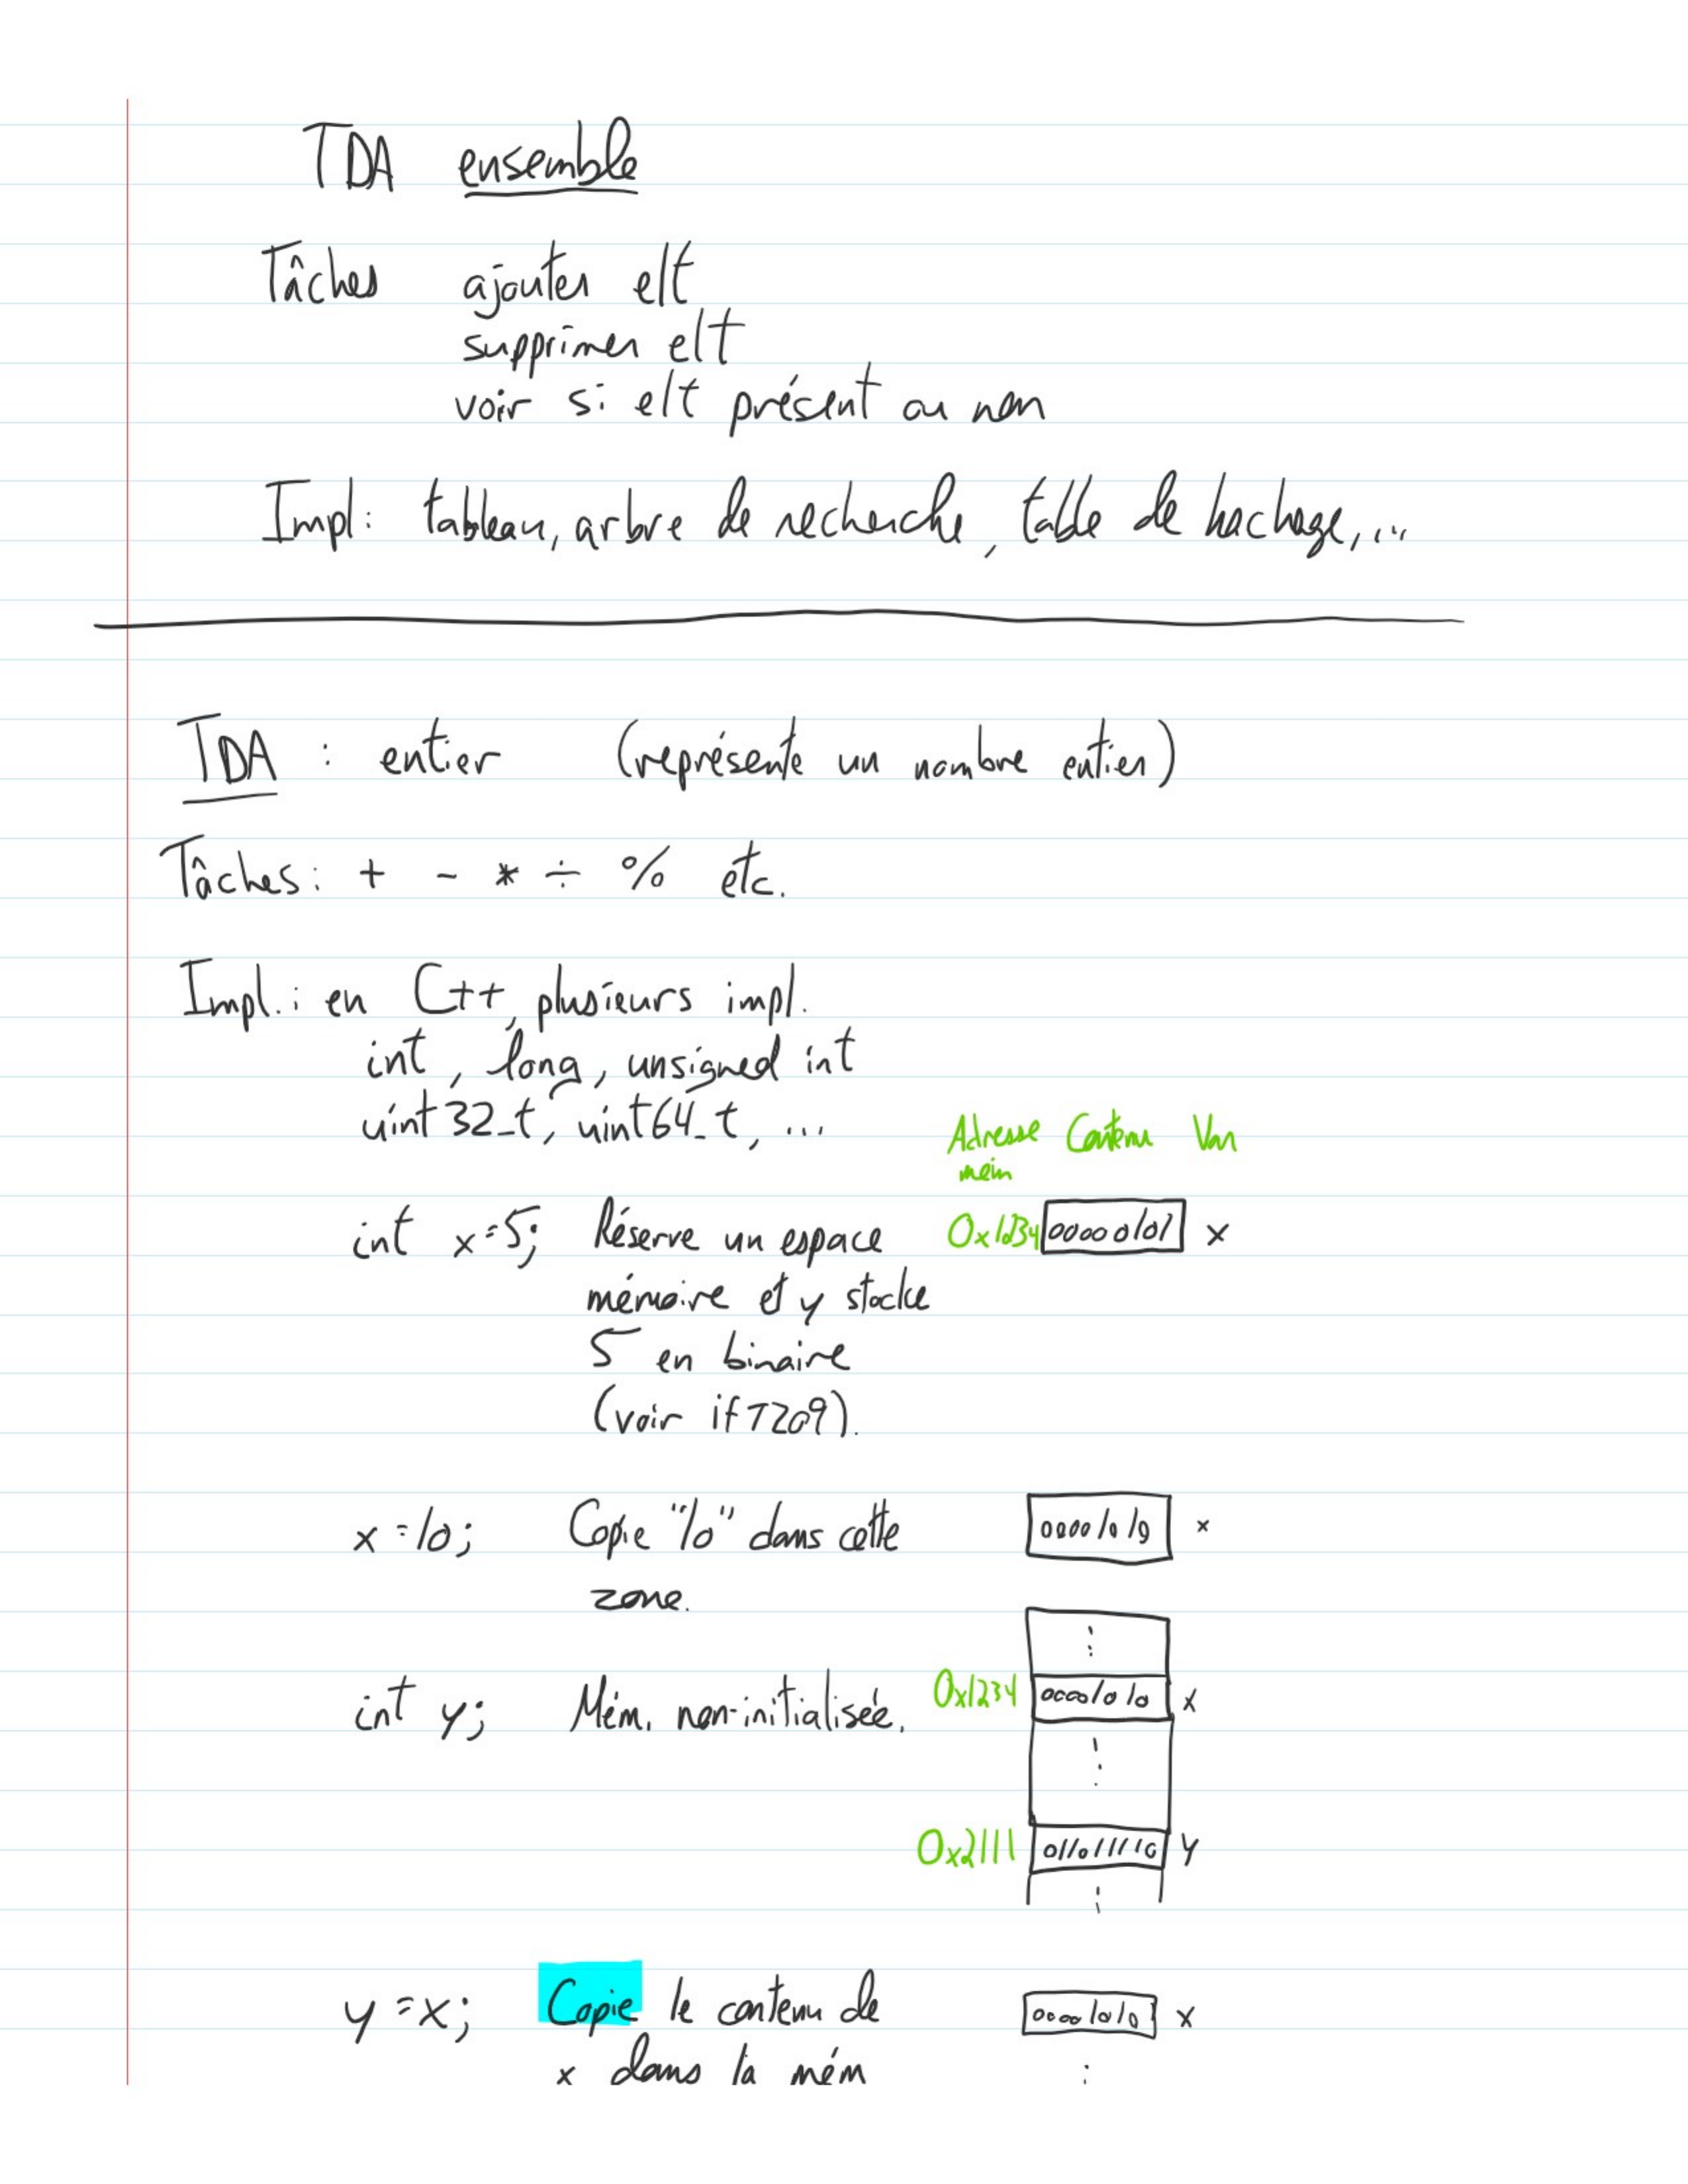 TDA ensemble
Tâches ajouter elt
supprimer elt
voir si elt présent ou non
Impl: tableau, arbre de recherche, table de hachage,...
TDA : entier (représente un nombre entier)
Tâches: + - * ÷ % etc.
Impl.: en C++, plusieurs impl.
int, long, unsigned int
uint32_t, uint64_t, ...
Adresse Contenu Var
mém
int x=5; Réserve un espace 0x1234 00000101 x
mémoire et y stocke
5 en binaire
(voir ift209).
x=10; Copie "10" dans cette 00001010 x
zone.
int y; Mém. non-initialisée. 0x1234 00001010 x
0x2111 011011110 y
y=x; Copie le contenu de 00001010 x
x dans la mém